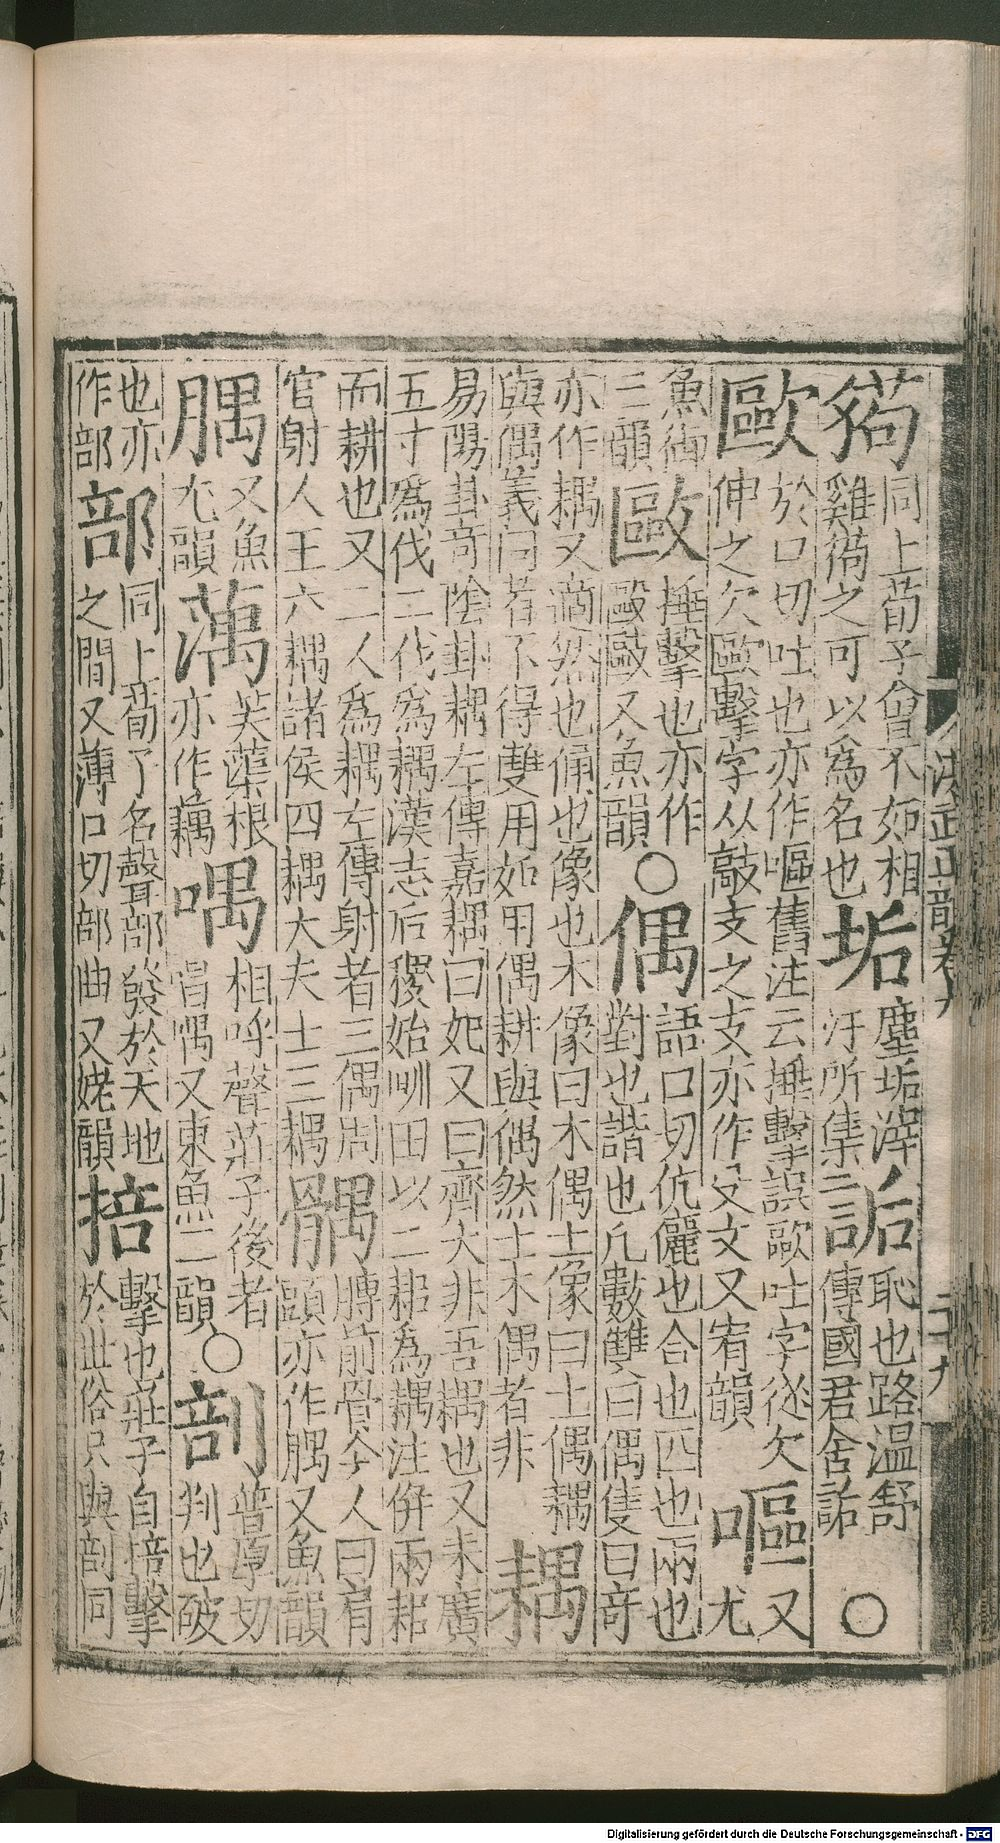 洪武正韻卷九 二十九
豿同上荀子曾不如相雞豿之可以爲名也垢塵垢滓汙所集詬恥也路溫舒傳國君含詬○
歐於口切吐也亦作嘔舊注云捶擊誤歐吐字從欠伸之欠歐擊字从敲攴之攴亦作攵文又宥韻嘔又尤
魚御三韻敺捶擊也亦作毆敺又魚韻○偶語口切伉儷也合也匹也兩也對也諧也凡數雙曰偶隻曰奇
亦作耦又適然也俑也像也木像曰木偶土像曰土偶耦與偶義同者不得雙用如用偶耕與偶然土木偶者非耦
易陽卦奇陰卦耦左傳嘉耦曰妃又曰齊大非吾耦也又耒廣五寸爲伐二伐爲耦漢志后稷始甽田以二耜爲耦注併兩耜
而耕也又二人爲耦左傳射者三偶周官射人王六耦諸侯四耦大夫士三耦髃膊前骨今人曰肩頭亦作腢又魚韻
腢又魚尤韻蕅芙蕖根亦作藕喁相呼聲莊子後者唱喁又東魚二韻○剖普厚切判也破
也亦作部部同上荀子名聲部發於天地之間又薄口切部曲又姥韻掊擊也莊子自掊擊於世俗只與剖同
Digitalisierung gefördert durch die Deutsche Forschungsgemeinschaft - DFG